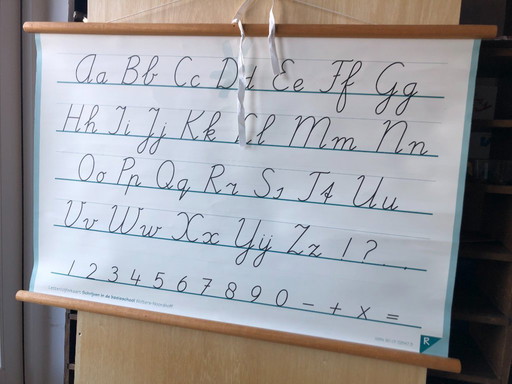 Aa Bb Cc Dd Ee Ff Gg
Hh Ii Jj Kk Ll Mm Nn
Oo Pp Qq Rr Ss Tt Uu
Vv Ww Xx Yij Zz 1 ?
1 2 3 4 5 6 7 8 9 0 - + x =
Schrijven in de basisschool
R